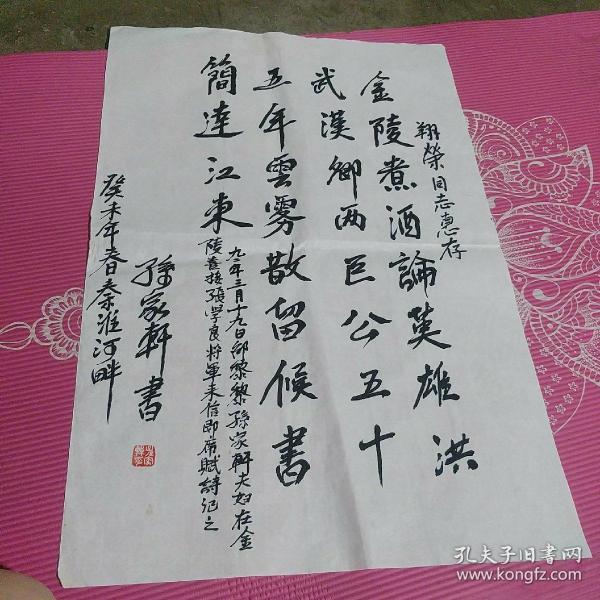 翔榮同志惠存
金陵煮酒論英雄洪
武漢卿两巨公五十
五年雲雾散留候書
簡達江東
九二年三月十九日邵黎黎孫家軒夫妇在金
陵喜接張學良將軍来信即席賦詩记之
孫家軒書
癸未年春秦淮河畔
孔夫子旧书网
www.kongfz.com